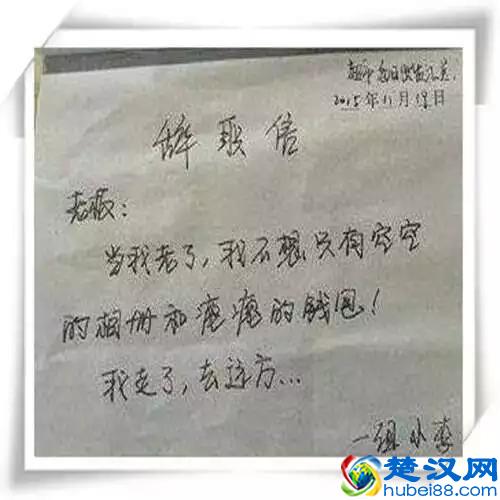 2015年11月19日
辞职信
老板：
当我老了，我不想只有空空
的相册和瘪瘪的钱包！
我走了，去远方...
一组 小李
楚汉网
hubei88.com